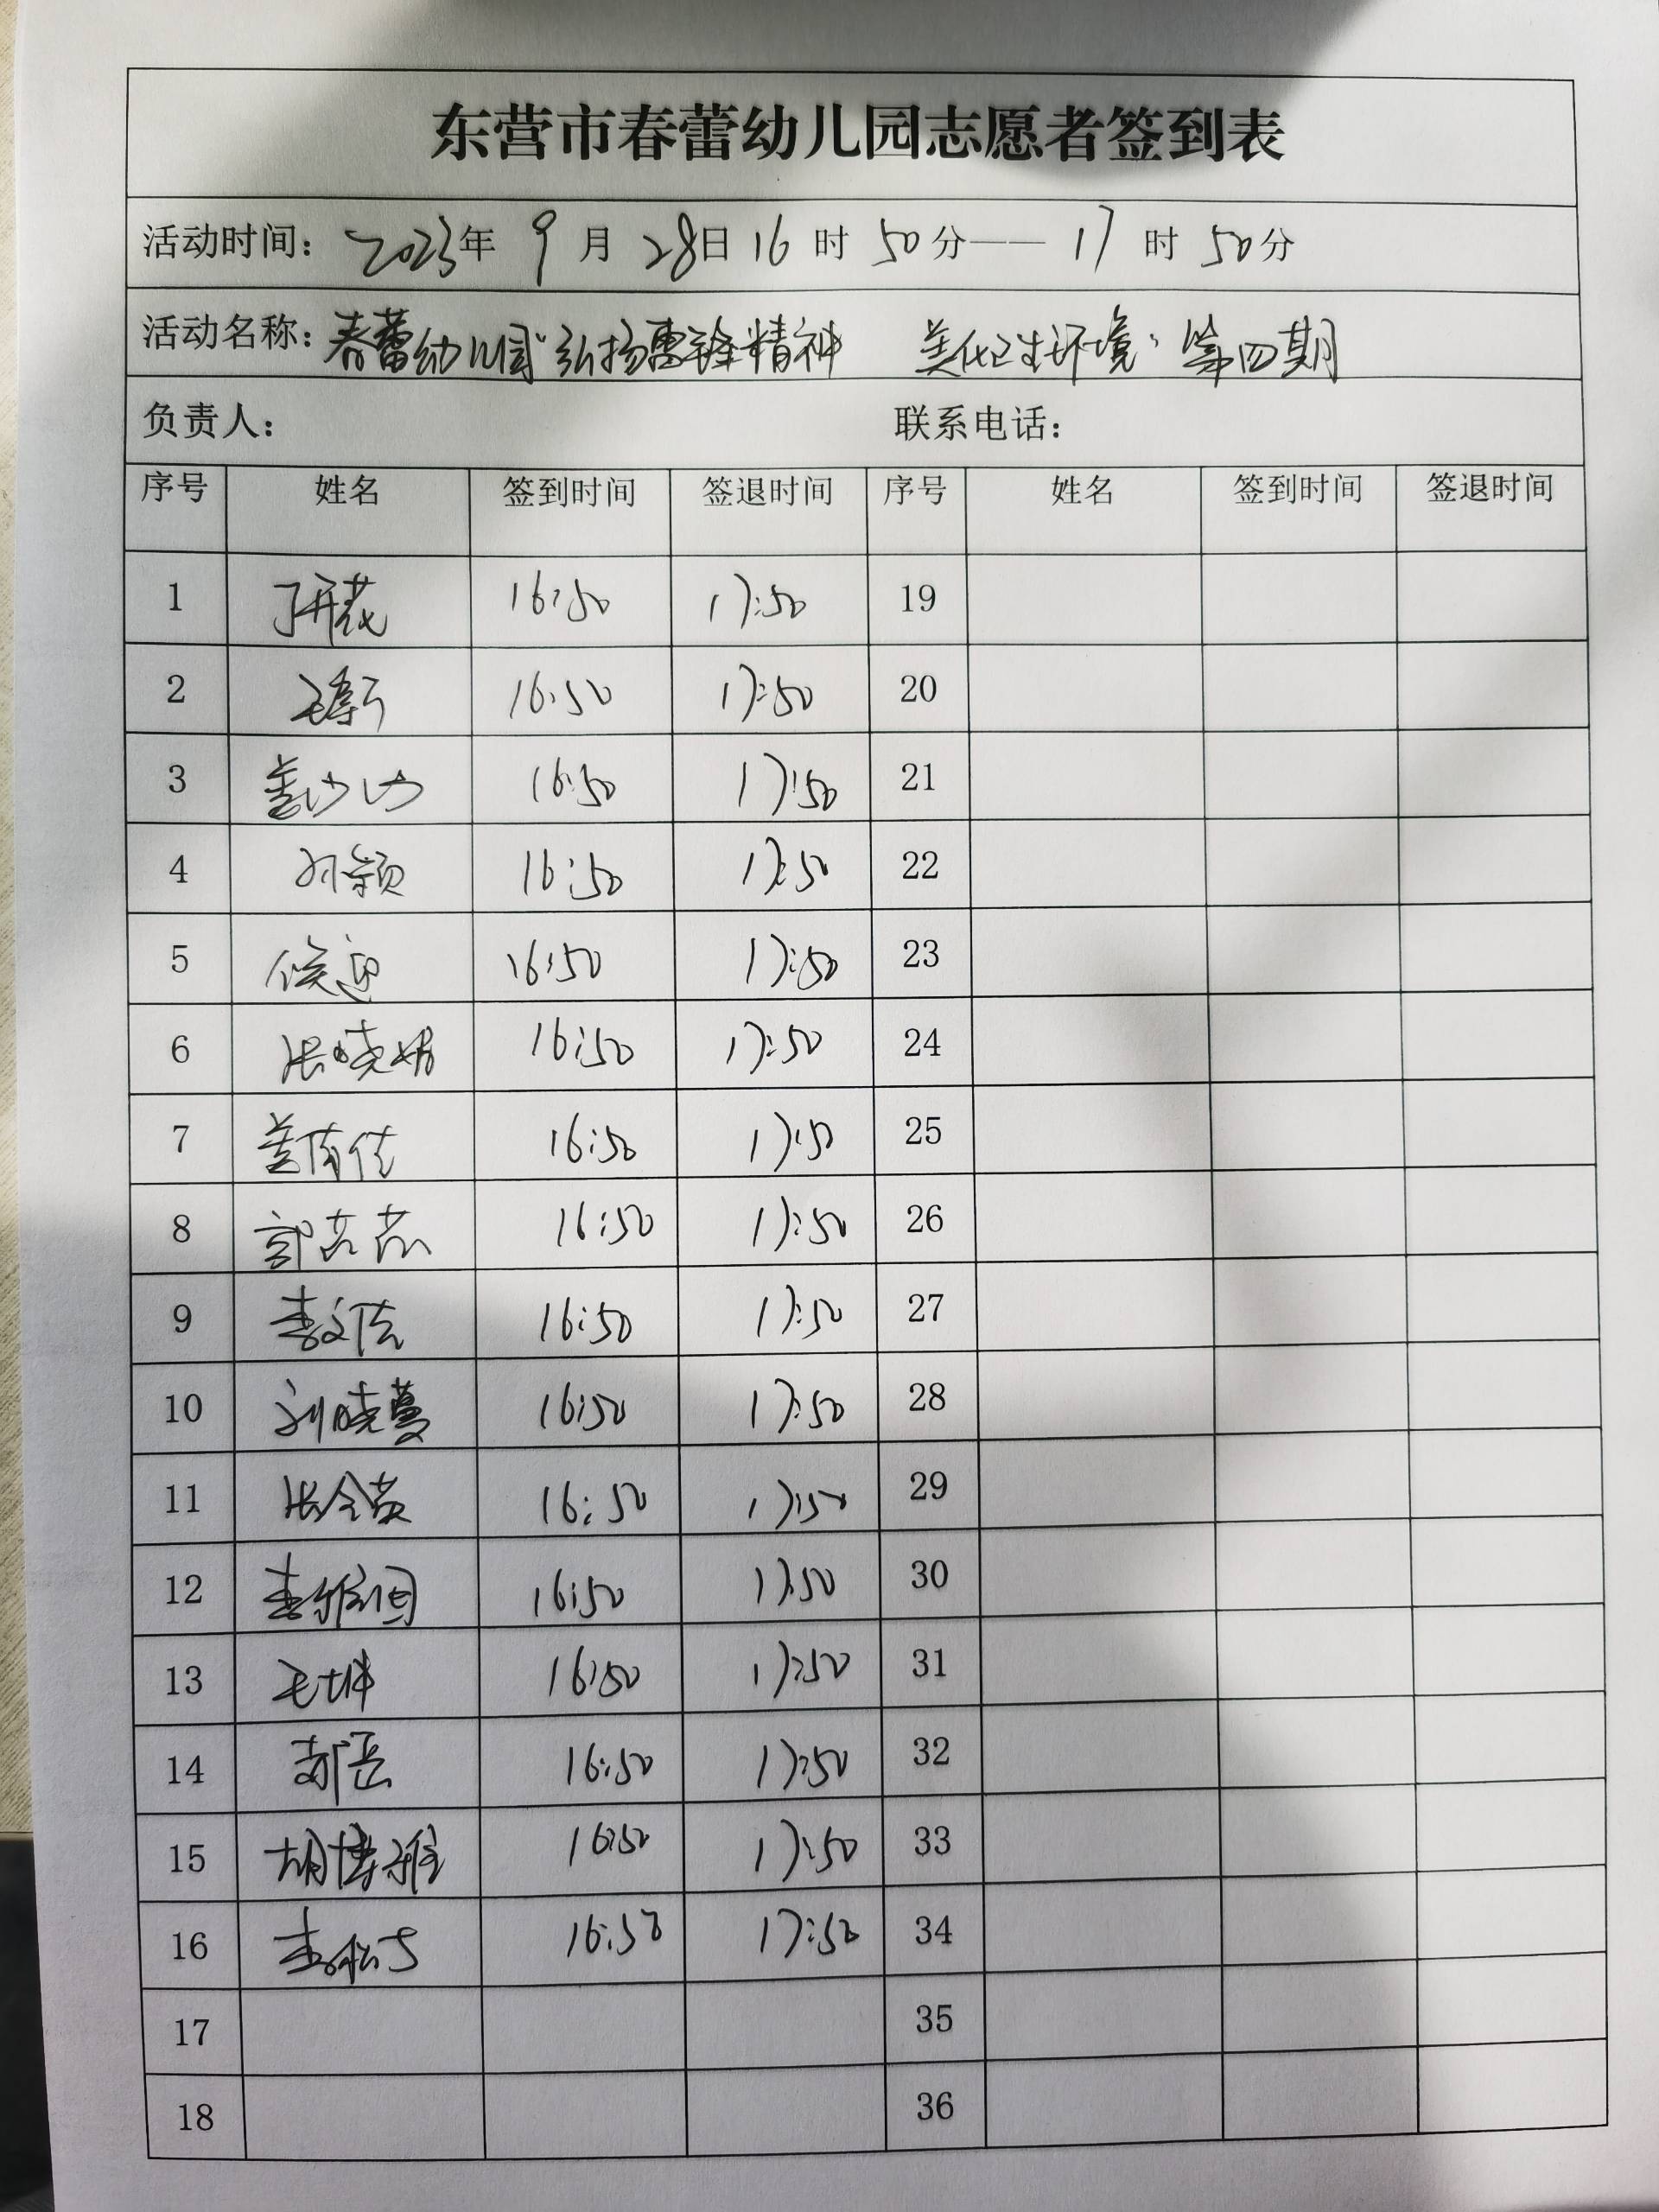 东营市春蕾幼儿园志愿者签到表
活动时间：2023年 9月 28日 16时 50分——17时 50分
活动名称：春蕾幼儿园“弘扬雷锋精神 美化卫生环境”第四期
负责人： 联系电话：
序号 姓名 签到时间 签退时间 序号 姓名 签到时间 签退时间
1 丁开花 16:50 17:50 19
2 16:50 17:50 20
3 16:50 17:50 21
4 孙颖 16:50 17:50 22
5 侯迎 16:50 17:50 23
6 张晓娟 16:50 17:50 24
7 16:50 17:50 25
8 郭芯芯 16:50 17:50 26
9 李文佳 16:50 17:50 27
10 刘晓蔓 16:50 17:50 28
11 张全英 16:50 17:50 29
12 16:50 17:50 30
13 毛坤 16:50 17:50 31
14 郝岳 16:50 17:50 32
15 胡博雅 16:50 17:50 33
16 16:50 17:50 34
17 35
18 36